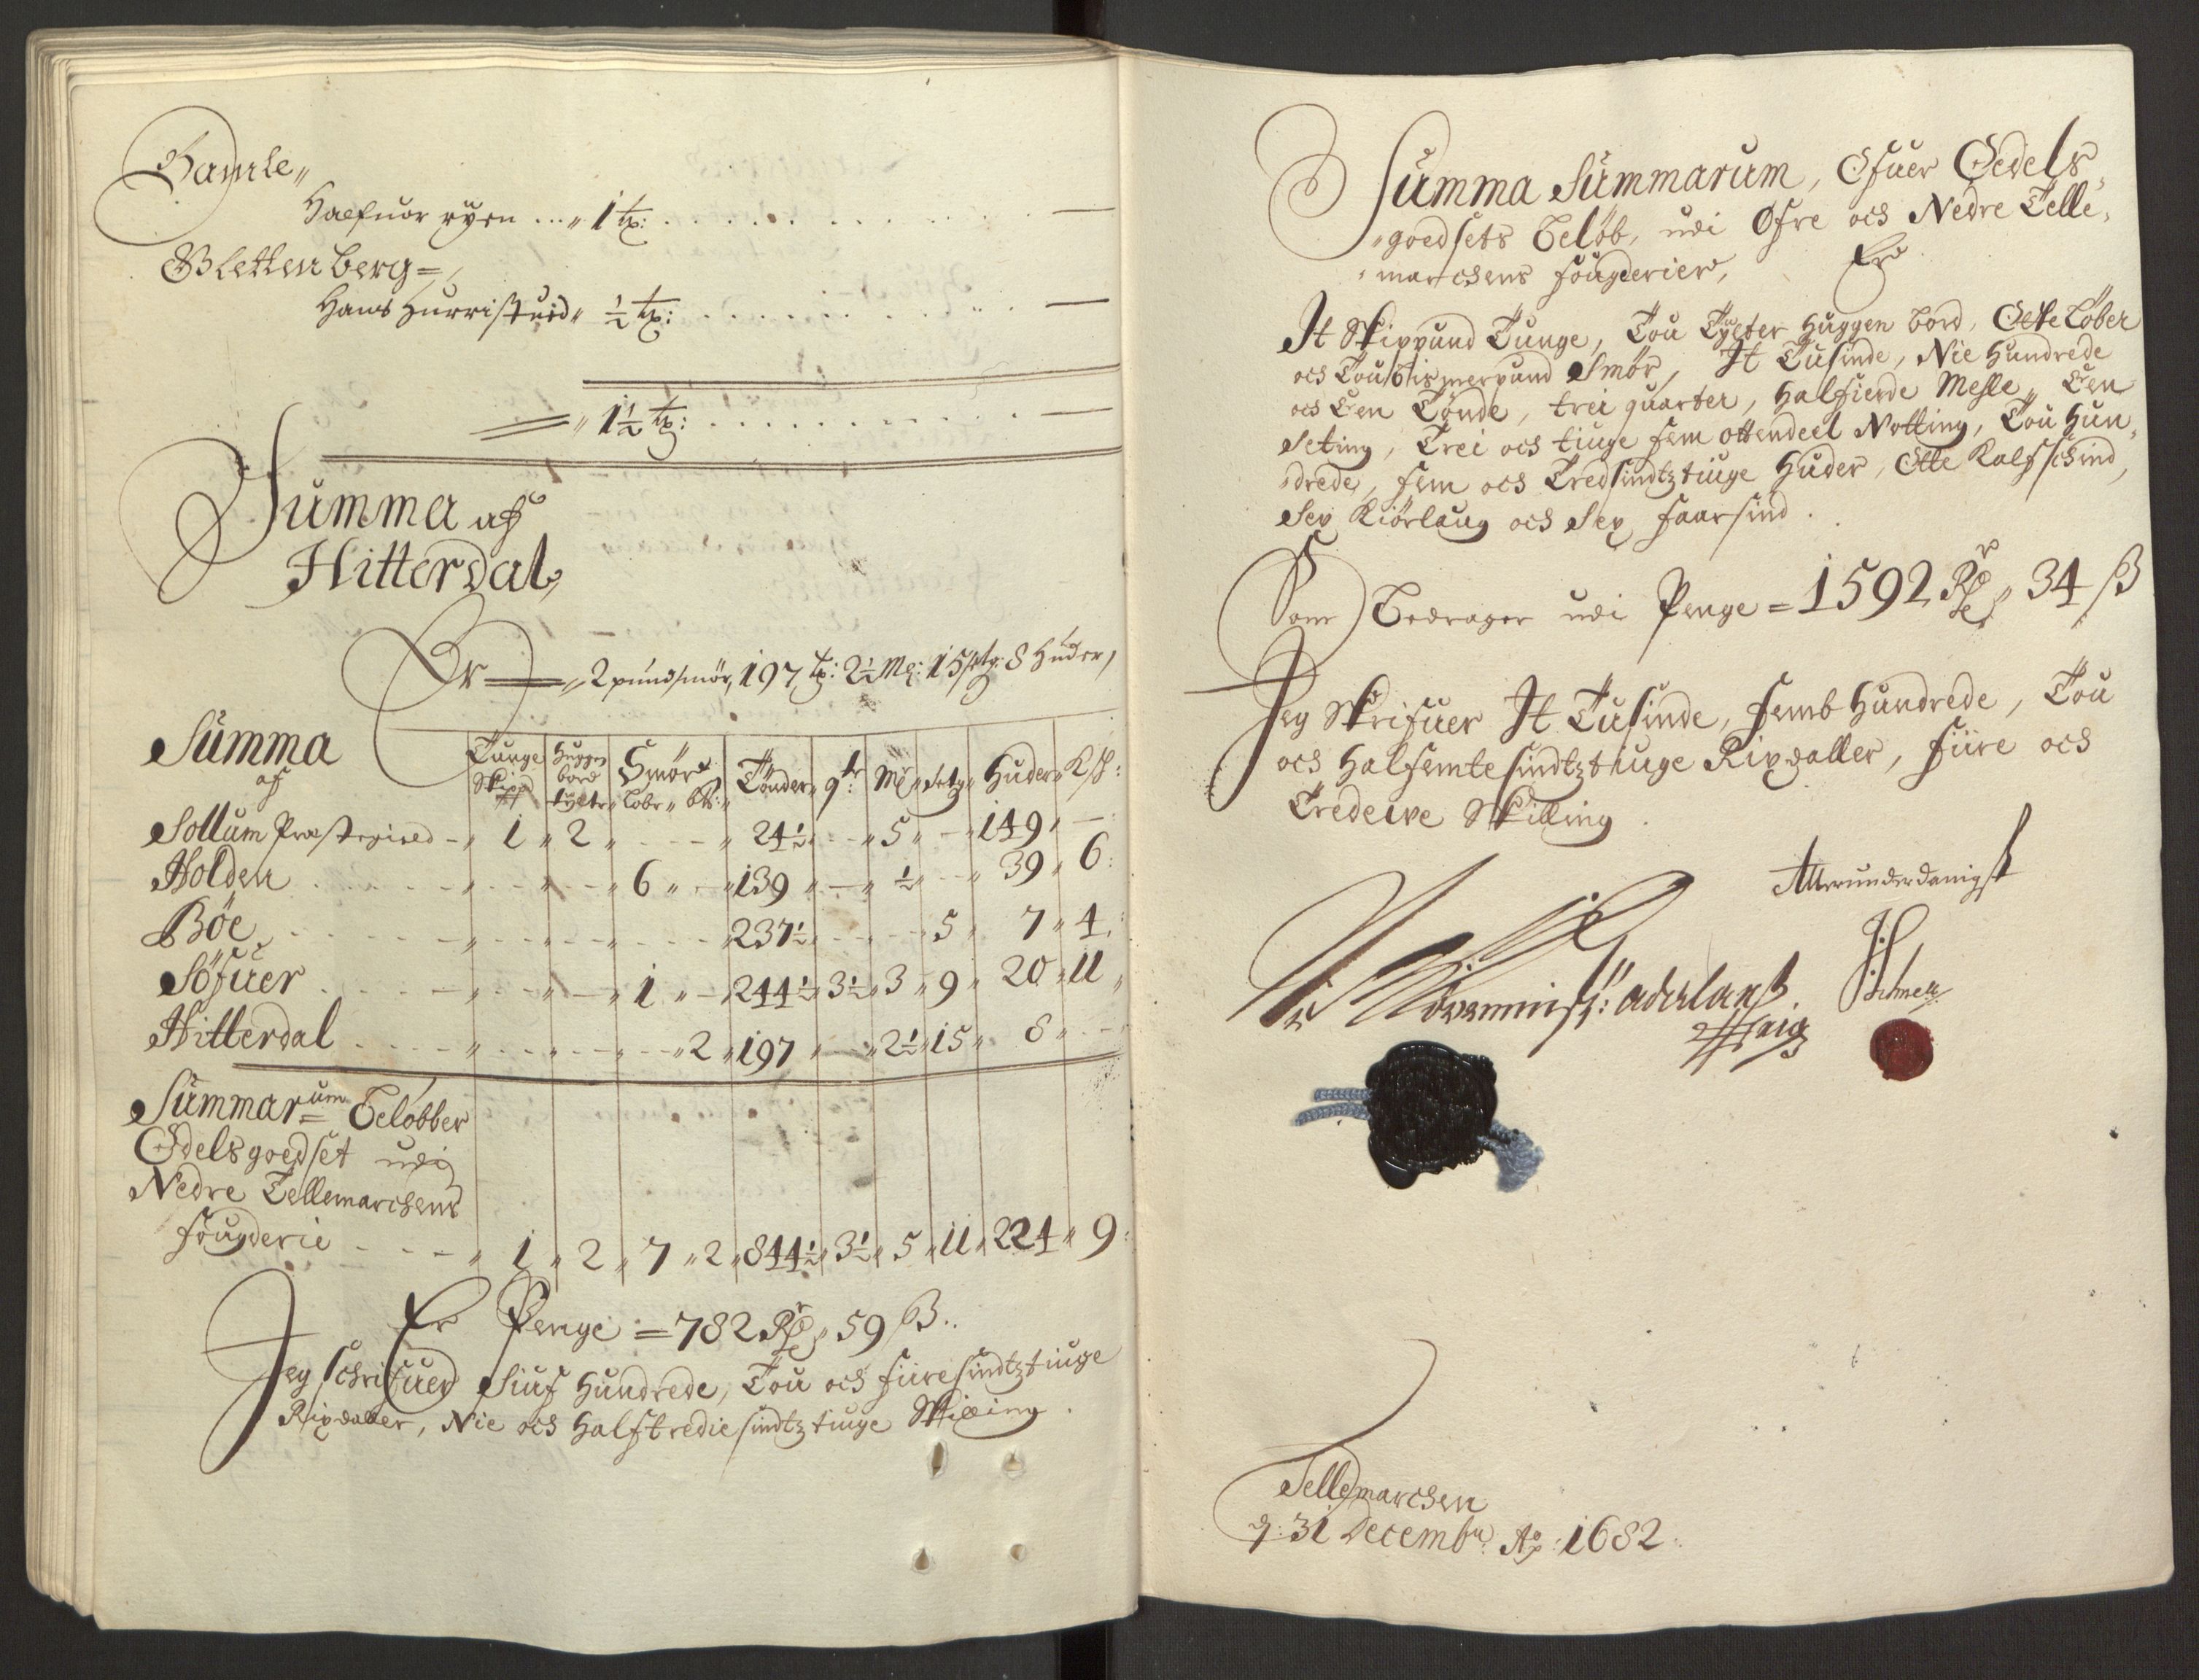 Gamle„
Halfuor ryen ... „ 1 tp: . . . . . . . . —
Blettenberg =,
Hans Hurristued „ ½ tp: . . . . . . . . —
„ 1½ tp: . . . . . . . . —
Summa af
Hitterdal,
Er — „ 2 pundsmör, 197 tp: 2½ Mæ: 15 setg: 8 Huder,
Summa
af
Tunge Skipp „ Huggen bord tylter „ Smör Lobr „ bp: „ Tönder „ qtr: „ Mæ „ Setg „ Huder „ Ksk:
Sollum Præstegield - „ 1 „ 2 „ - - - „ 24½ „ - - „ 5 „ - „ 149 „ —
Holden . . . . „ - - „ - - „ 6 „ - „ 139 „ — „ ½ „ - - „ 39 „ 6:
Böe . . . . „ - - „ - - - - „ 237½ „ - - - - 5 „ 7 „ 4:
Söfuer . . . . „ - - „ — „ 1 „ - „ 244½ „ 3½ „ 3 „ 9 „ 20 „ 11 „
Hitterdal . . . . „ - - - - - - „ 2 „ 197 „ — „ 2½ „ 15 „ 8 „ - -
Summarum Belöbber
Odelsgoedset udi
Nedre Tellemarchens
fougderie - - - „ 1 „ 2 „ 7 „ 2 „ 844½ „ 3½ „ 5 „ 11 „ 224 „ 9:
Er Penge = 782 Rdr „ 59 ß..
Jeg schrifuer Siuf Hundrede, Tou och fiiresindtztiuge
Rixdaller, Nie och halftrediesindtztiuge Skilling.
Summa Summarum, Ofuer Oedels„
„goedsets Belöb, udi Øfre och Nedre Telle„
„marchens fougderier, Er
It Skippund Tunge, Tou Tylter Huggen bord, Otte Löber
och Tou bismerpund Smör, It Tusinde, Nie Hundrede
och Een Tönde, trei quarter, halfierde Mesle, Een
Seting, Trei och tiuge fem ottendeel Notting, Tou Hun„
„drede, fem och Tredsindtztiuge Huder, Otte Kalfschind,
Sex Kiörlaug och Sex faarsind.
Som Bedrager udi Penge = 1592 Rdr „ 34 ß
Jeg Skrifuer It Tusinde, femb Hundrede, Tou
och halfemtesindtztiuge Rixdaller, fiire och
Tredeive Skilling.
Allerunderdanigst
Tellemarchen
d: 31 Decembr Ao: 1682.